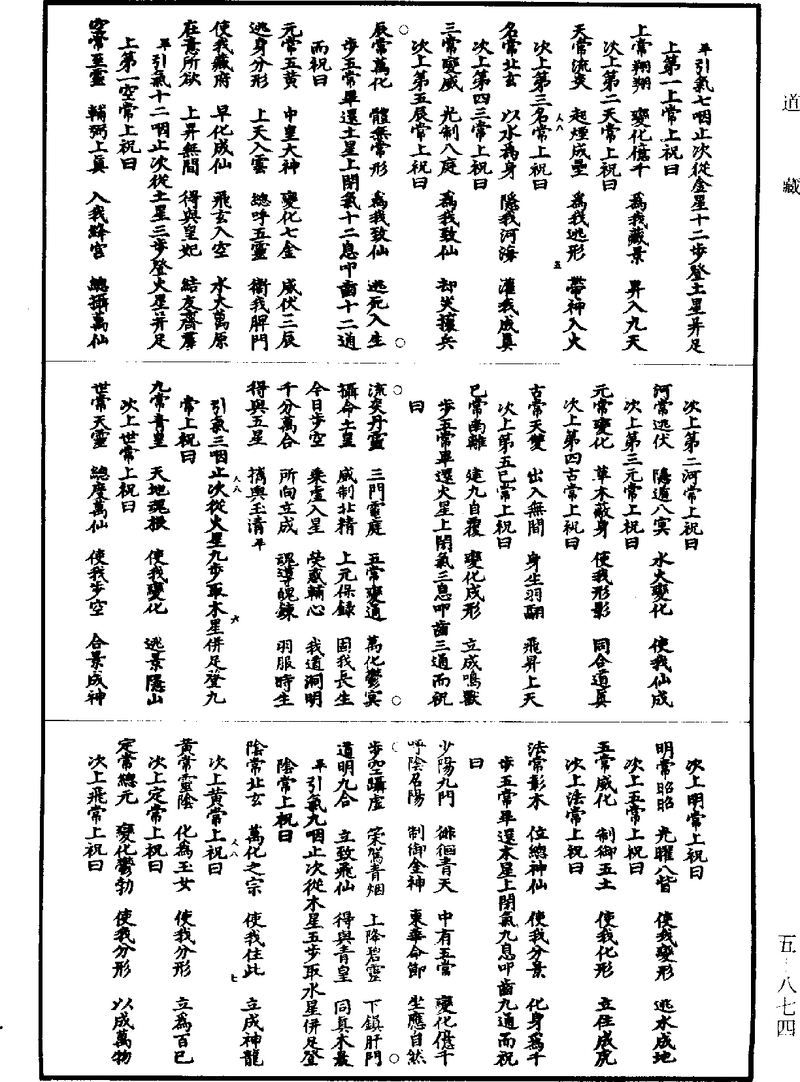 道藏
平引氣七咽止次從金星十二步登土星并足
上第一上常上祝曰
上常翔翔 變化億千 爲我藏景 昇入九天
次上第二天常上祝曰
天常流炎 起煙成壘 爲我逃形 帶神入火
次上第三名常上祝曰
名常北玄 以水為身 隱我河海 灌我成真
次上第四三常上祝曰
三常變威 光制八庭 爲我致仙 却災攘兵
次上第五辰常上祝曰
辰常萬化 體無常形 爲我致仙 逃死入生
步五常畢還土星上閉氣十二息叩齒十二通
而祝曰
元常五黃 中皇大神 變化七金 威伏三辰
逃身分形 上天入雲 總呼五靈 衛我脾門
使我藏府 早化成仙 飛玄入空 水火萬原
在意所欲 上昇無間 得與皇妃 結友齊羣
平引氣十二咽止次從土星三步登火星并足
上第一空常上祝曰
空常至靈 輔弼上真 入我絳宮 總攝萬仙
次上第二河常上祝曰
河常迅伏 隱遁八冥 水火變化 使我仙成
次上第三元常上祝曰
元常變化 草木蔽身 使我形影 同合道真
次上第四古常上祝曰
古常天變 出入無間 身生羽翮 飛昇上天
次上第五巳常上祝曰
巳常幽離 建九自覆 變化成形 立成鳴獸
步五常畢還火星上閉氣三息叩齒三通而祝
曰
流炎丹靈 三門電庭 五常變道 萬化鬱冥
攝命土皇 威制北精 上元保錄 固我長生
今日步空 乘虛入星 熒惑輔心 我道洞明
千分萬合 所向立成 魂導魄鍊 羽服時生
得與五星 携與玉清 平
引氣三咽止次從火星九步取木星併足登九
常上祝曰
九常青皇 天地魂根 使我變化 逃景隱山
次上世常上祝曰
世常天靈 總摩萬仙 使我步空 合景成神
次上明常上祝曰
明常昭昭 光曜八嵴 使我變形 逃水成地
次上五常上祝曰
五常威化 制御五土 使我化形 立任成虎
次上法常上祝曰
法常彰木 位總神仙 使我分景 化身爲千
步五常畢還木星上閉氣九息叩齒九通而祝
曰
少陽九門 徘徊青天 中有五常 變化億千
呼陰召陽 制御金神 東華命節 坐應自然
步空躡虛 策駕青烟 上降碧靈 下鎮肝門
道明九合 立致飛仙 得與青皇 同真木晨
平引氣九咽止次從木星五步取水星併足登
陰常上祝曰
陰常北玄 萬化之宗 使我住此 立成神龍
次上黃常上祝曰
黃常靈陰 化為玉女 使我分形 立為百巳
次上定常上祝曰
定常總元 變化鬱勃 使我分形 以成萬物
次上飛常上祝曰
五-八七四